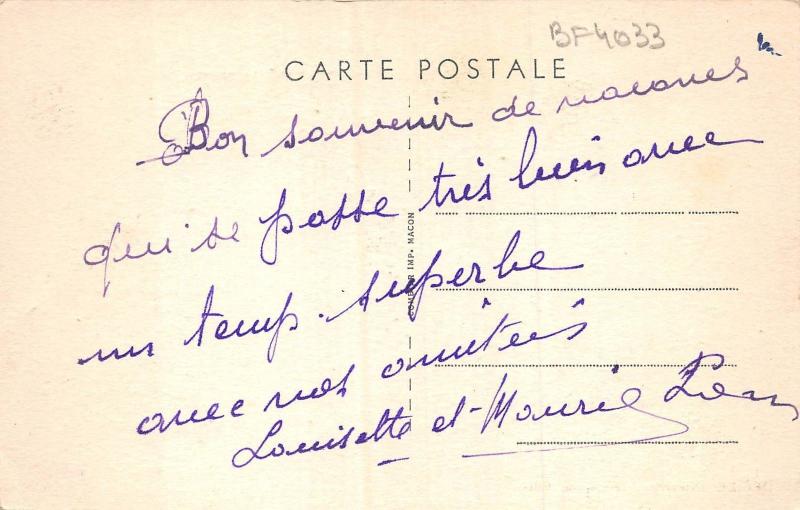 BF4033
CARTE POSTALE
Bon souvenir de vacances
qui se passe très bien avec
un temp. superbe
avec nos amitiés
Louisette et Maurice
COMBIER IMP. MACON